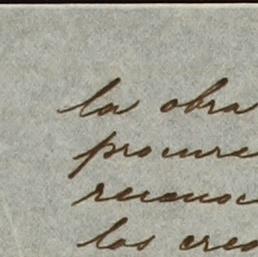 la obra
procure
reconoc
los crea